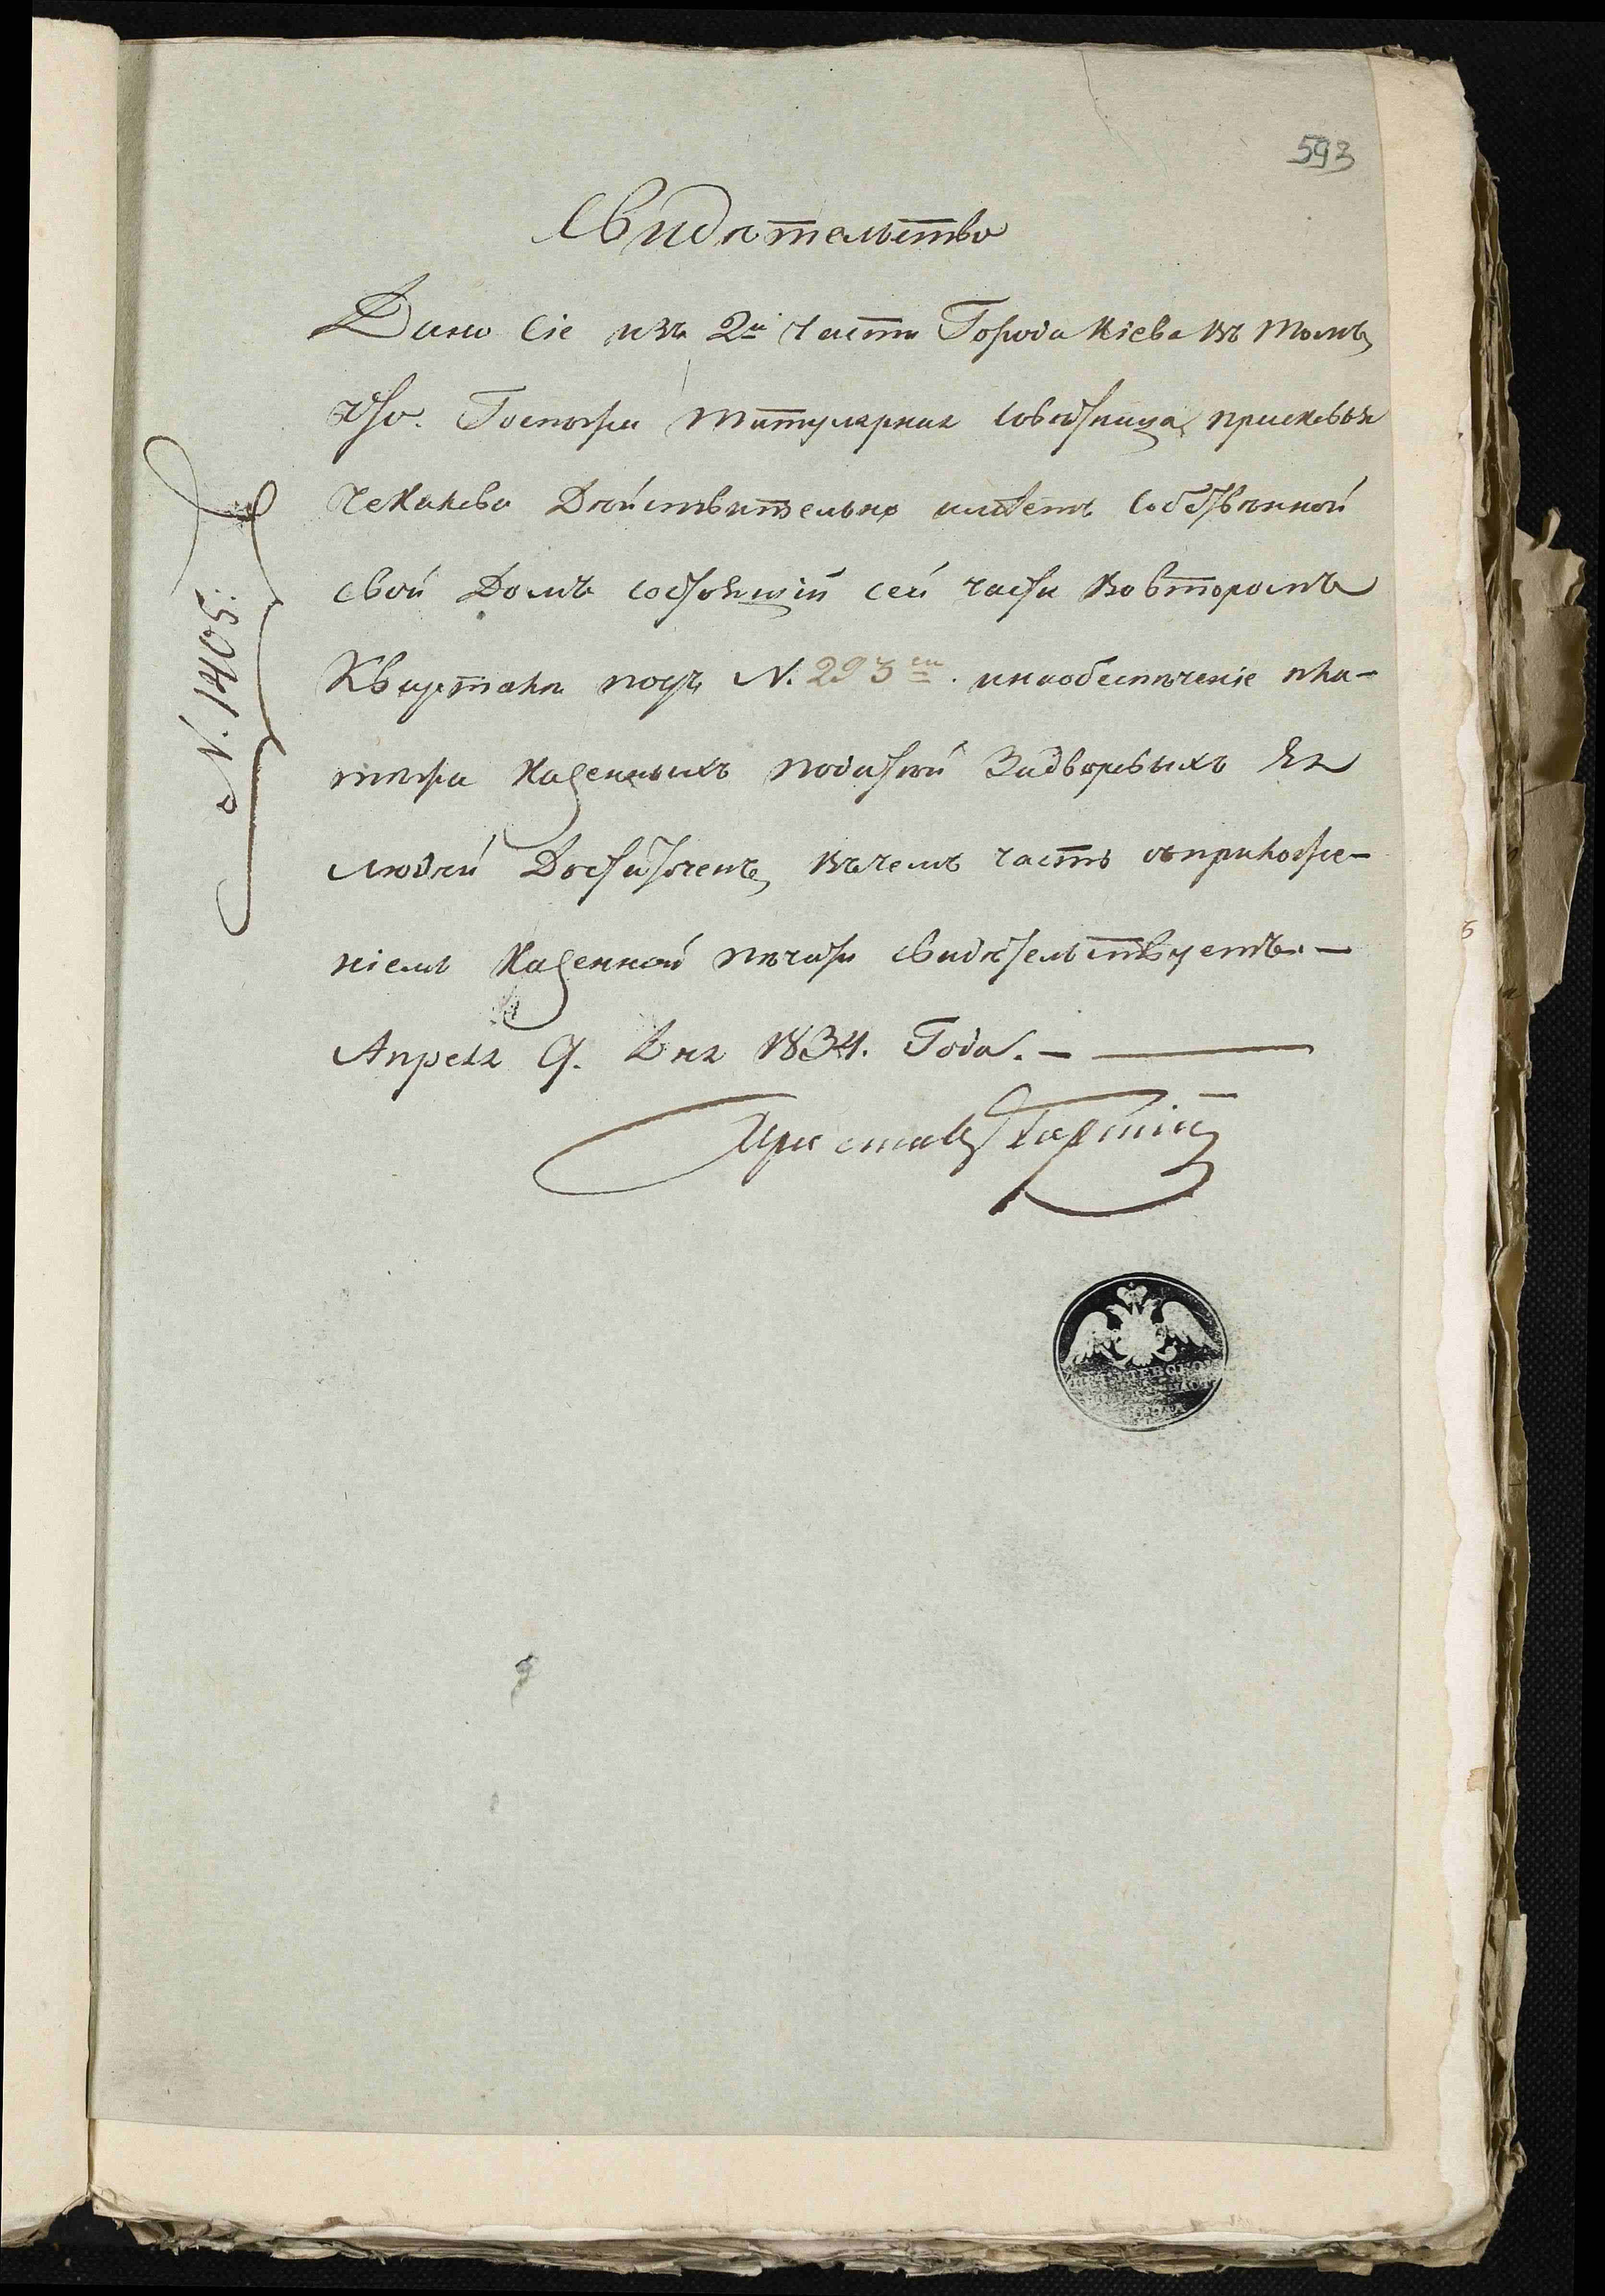 593
Свидетельство
Дано сіе изъ 2й Части Города Кіева въ томъ,
что. Госпожа титулярная советница, прасковья
Чекакова Действительно имѣетъ собственной
свой Домъ состоящій сей части во второмъ
Квартале подъ N. 293м. и на обеспечение пла-
тежа казенныхъ податей За дворовыхъ Ея
людей Достаточенъ, въ чемъ часть съ приложе-
ніемъ Казенной печати свидетельствуетъ. —
Апреля 9. Дня 1834. Года. —
Приставъ
N. 1405.